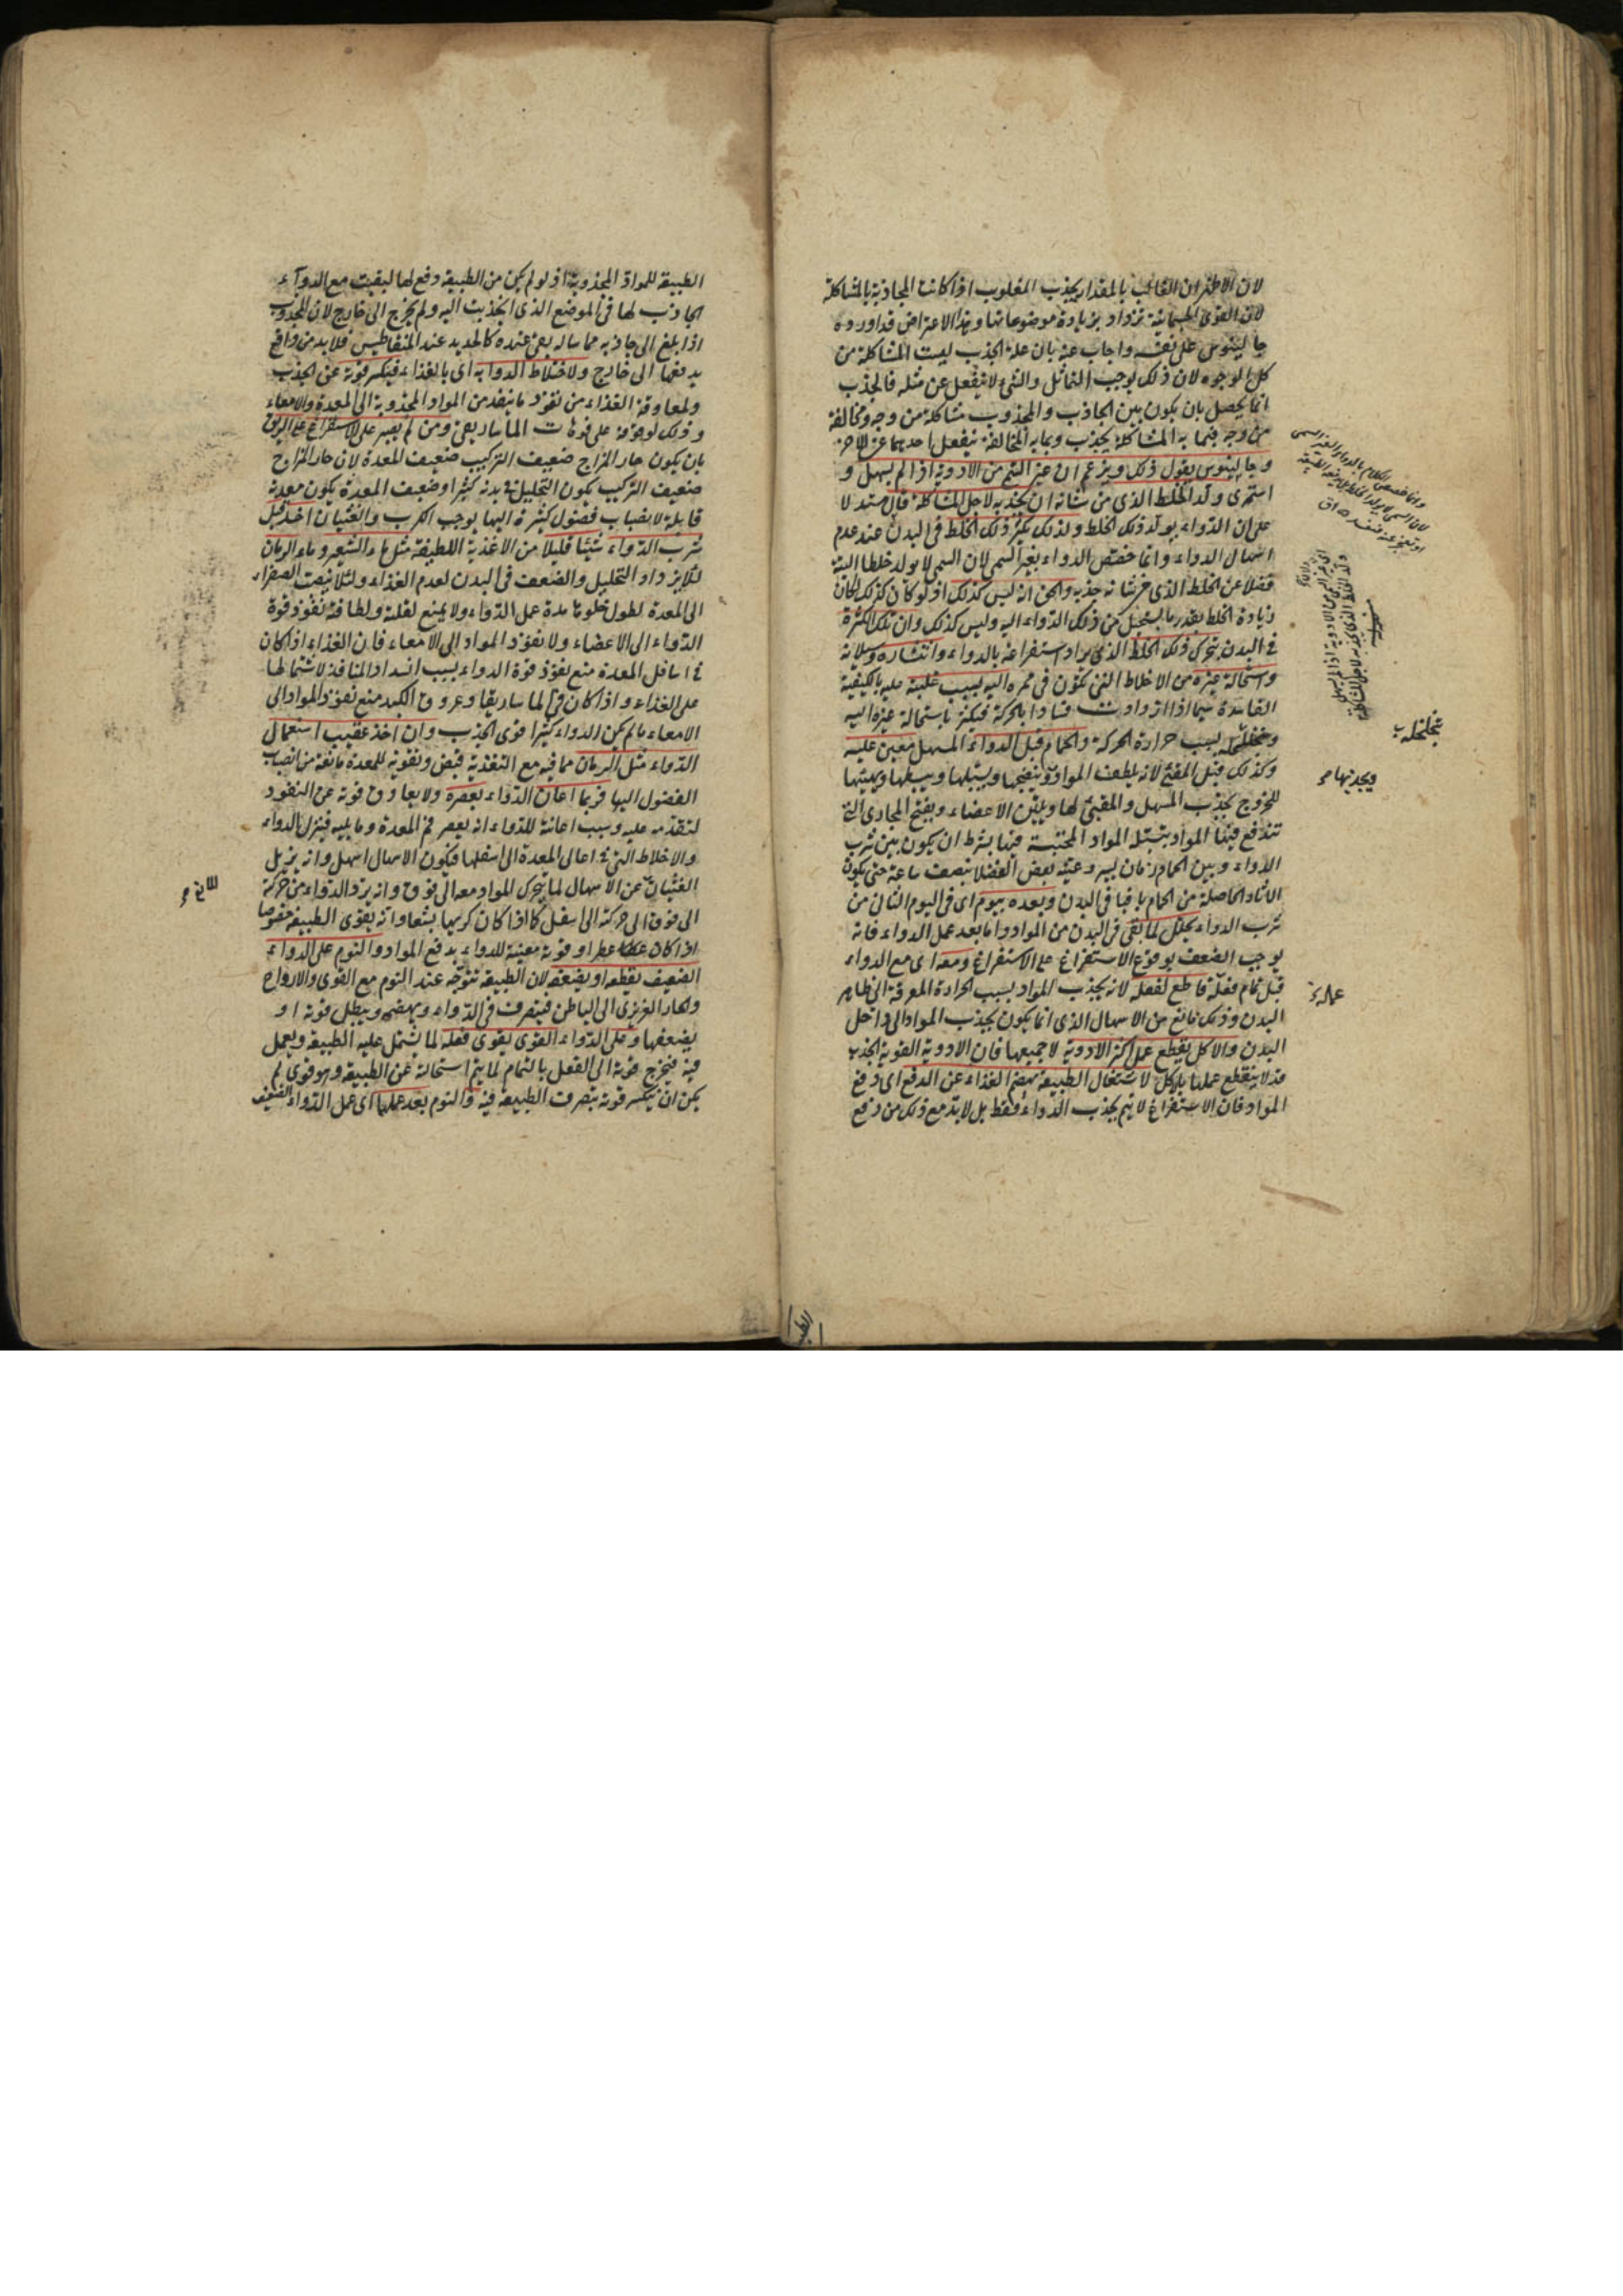 لان الاظهر ان الغالب بالمقدار يجذب المغلوب اذا كانت المجاذبة بالمشاكلة
لان القوى الجسمانية تزداد بزيادة موضوعاتها وهذا الاعتراض قد اورده
جالينوس على نفسه واجاب عنه بان علة الجذب ليست المشاكلة من
كل الوجوه لان ذلك يوجب التماثل والشئ لا ينفعل عن مثله فالجذب
انما يحصل بان يكون بين الجاذب والمجذوب مشاكلة من وجه ومخالفة
من وجه فبما به المشاكلة يجذب وبما به المخالفة ينفعل احدهما عن الاخر
وجالينوس يقول ذلك ويزعم ان غير السمي من الادوية اذا لم يسهل و
استمرى ولد الخلط الذى من شانه ان يجذبه لاجل المشاكلة قال مستدلا
على ان الدواء يولد ذلك الخلط ولذلك يكثر ذلك الخلط فى البدن عند عدم
اسهال الدواء وانما خصص الدواء بغير السمي لان السمي لا يولد خلطا البتة
فضلا عن الخلط الذى من شانه جذبه والحق انه ليس كذلك اذ لو كان كذلك لكان
زيادة الخلط بقدر ما يستحيل من ذلك الدواء اليه وليس كذلك وان تلك الكثرة
فى البدن بتحرك ذلك الخلط الذى يراد استفراغه بالدواء وانتشاره وسيلانه
واستحالة غيره من الاخلاط التى تكون فى ممره اليه بسبب غلبته عليه بالكيفية
الفاسدة سيما اذا ازدادت فسادا بالحركة فيكثر باستحالة غيره اليه
وتخلخله بسبب حرارة الحركة والحمام قبل الدواء المسهل معين عليه
وكذلك قبل المقئ لانه يلطف المواد وينضجها ويسيلها ويبسطها ويهيئها
للخروج بجذب المسهل والمقيئ لها ويلين الاعضاء ويفتح المجارى التى
تندفع فيها المواد بتسييله المواد المحتبسة فيها بشرط ان يكون بين شرب
الدواء وبين الحمام زمان يسير وعينه بعض الفضلا بنصف ساعة حتى يكون
الاثار الحاصلة من الحمام باقيا فى البدن وبعده بيوم اى فى اليوم الثانى من
شرب الدواء يحلل لما بقى فى البدن من المواد واما بعد عمل الدواء فانه
يوجب الضعف بوقوع الاستفراغ على الاستفراغ ومعه اى مع الدواء
قبل تمام فعله قاطع لفعله لانه يجذب المواد بسبب الحرارة المعرقة الى ظاهر
البدن وذلك مانع من الاسهال الذى انما يكون بجذب المواد الى داخل
البدن والاكل يقطع عمل اكثر الادوية لا جميعها فان الادوية القوية الجذب
قد لا ينقطع عملها بالاكل لاشتغال الطبيعة بهضم الغذاء عن الدفع اى دفع
المواد فان الاستفراغ لا يتم بجذب الدواء فقط بل لا بد مع ذلك من دفع
وانما خصص الكلام بالدواء الغير السمى
تخلخله
ويجذبها
عمله
الطبيعة للمواد المجذوبة اذ لو لم يكن من الطبيعة دفع لها لبقيت مع الدواء
الجاذب لها فى الموضع الذى انجذبت اليه ولم يخرج الى خارج لان المجذوب
اذا بلغ الى جاذبه مماسا له بقى عنده كالحديد عند المغناطيس فلا بد من دافع
يدفعها الى خارج ولاختلاط الدواء به اى بالغذاء فيكسر قوته عن الجذب
ولمعاوقة الغذاء من نفوذ ما ينفذ من المواد المجذوبة الى المعدة والامعاء
وذلك لوقوفه على فوهات الماساريقى ومن لم يصبر على الاستفراغ على الريق
بان يكون حار المزاج ضعيف التركيب ضعيف المعدة لان حار المزاج
ضعيف التركيب يكون التحليل فى بدنه كثيرا وضعيف المعدة يكون معدته
قابلة لانصباب فضول كثيرة اليها يوجب الكرب والغثيان اخذ قبل
شرب الدواء شيئا قليلا من الاغذية اللطيفة مثل ماء الشعير وماء الرمان
لئلا يزداد التحليل والضعف فى البدن لعدم الغذاء ولئلا ينصب الصفراء
الى المعدة لطول خلوها مدة عمل الدواء ولا يمنع لقلته ولطافته نفوذ قوة
الدواء الى الاعضاء ولا نفوذ المواد الى الامعاء فان الغذاء اذا كان
فى اسافل المعدة منع نفوذ قوة الدواء بسبب انسداد المنافذ لاشتمالها
على الغذاء واذا كان فى الماساريقا وعروق الكبد منع نفوذ المواد الى
الامعاء ما لم يكن الدواء كثيرا قوى الجذب وان اخذ عقيب استعمال
الدواء مثل الرمان مما فيه مع التغذية قبض وتقوية للمعدة مانعة من انصباب
الفضول اليها فربما اعان الدواء بعصره ولا يعاوق قوته عن النفوذ
لتقدمه عليه وسبب اعانته للدواء انه يعصر فم المعدة وما يليه فينزل الدواء
والاخلاط التى فى اعالى المعدة الى اسفلها فيكون الاسهال اسهل وانه يزيل
الغثيان عن الاسهال لما يحرك المواد معه الى فوق وانه يرد الدواء من حركة
الى فوق الى حركة الى اسفل كما اذا كان كريها بشعا وانه يقوى الطبيعة خصوصا
اذا كان عطرا وقوته معينة للدواء بدفع المواد والنوم على الدواء
الضعيف يقطعه او يضعفه لان الطبيعة تتوجه عند النوم مع القوى والارواح
والحار الغريزى الى الباطن فيتصرف فى الدواء ويهضمه ويبطل قوته او
يضعفها وعلى الدواء القوى يقوى فعله لما يشتمل عليه الطبيعة ويعمل
فيه فيخرج قوته الى الفعل بالتمام لما يتم استحالته عن الطبيعة وهو قوى لم
يمكن ان ينكسر قوته بتصرف الطبيعة فيه والنوم بعد عملها اى عمل الدواء الضعيف